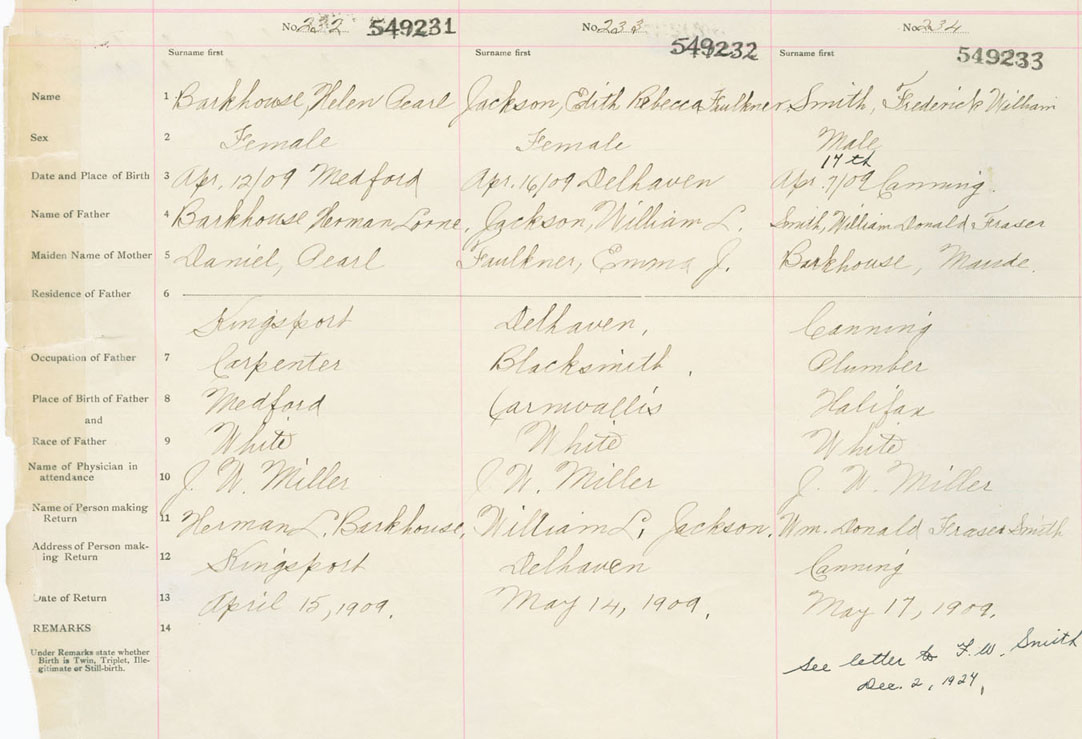 No. 232 549231 No. 233 549232 No. 234 549233
Surname first Surname first Surname first
Name 1 Barkhouse, Helen Pearl Jackson, Edith Rebecca Faulkner Smith, Frederick William
Sex 2 Female Female Male
17th
Date and Place of Birth 3 Apr. 12/09 Medford Apr. 16/09 Delhaven Apr. 7/09 Canning.
Name of Father 4 Barkhouse Herman Lorne, Jackson, William L. Smith, William Donald Fraser
Maiden Name of Mother 5 Daniel, Pearl Faulkner, Emma J. Barkhouse, Maude.
Residence of Father 6
Kingsport Delhaven, Canning
Occupation of Father 7 Carpenter Blacksmith. Plumber
Place of Birth of Father 8 Medford Cornwallis Halifax
and
Race of Father 9 White White White
Name of Physician in
attendance 10 J. W. Miller J. W. Miller J. W. Miller
Name of Person making
Return 11 Herman L. Barkhouse, William L. Jackson. Wm. Donald Fraser Smith
Address of Person mak-
ing Return 12 Kingsport Delhaven Canning
Date of Return 13 April 15, 1909. May 14, 1909. May 17, 1909.
REMARKS 14
Under Remarks state whether
Birth is Twin, Triplet, Ille-
gitimate or Still-birth.
See letter to F. W. Smith
Dec. 2, 1924,